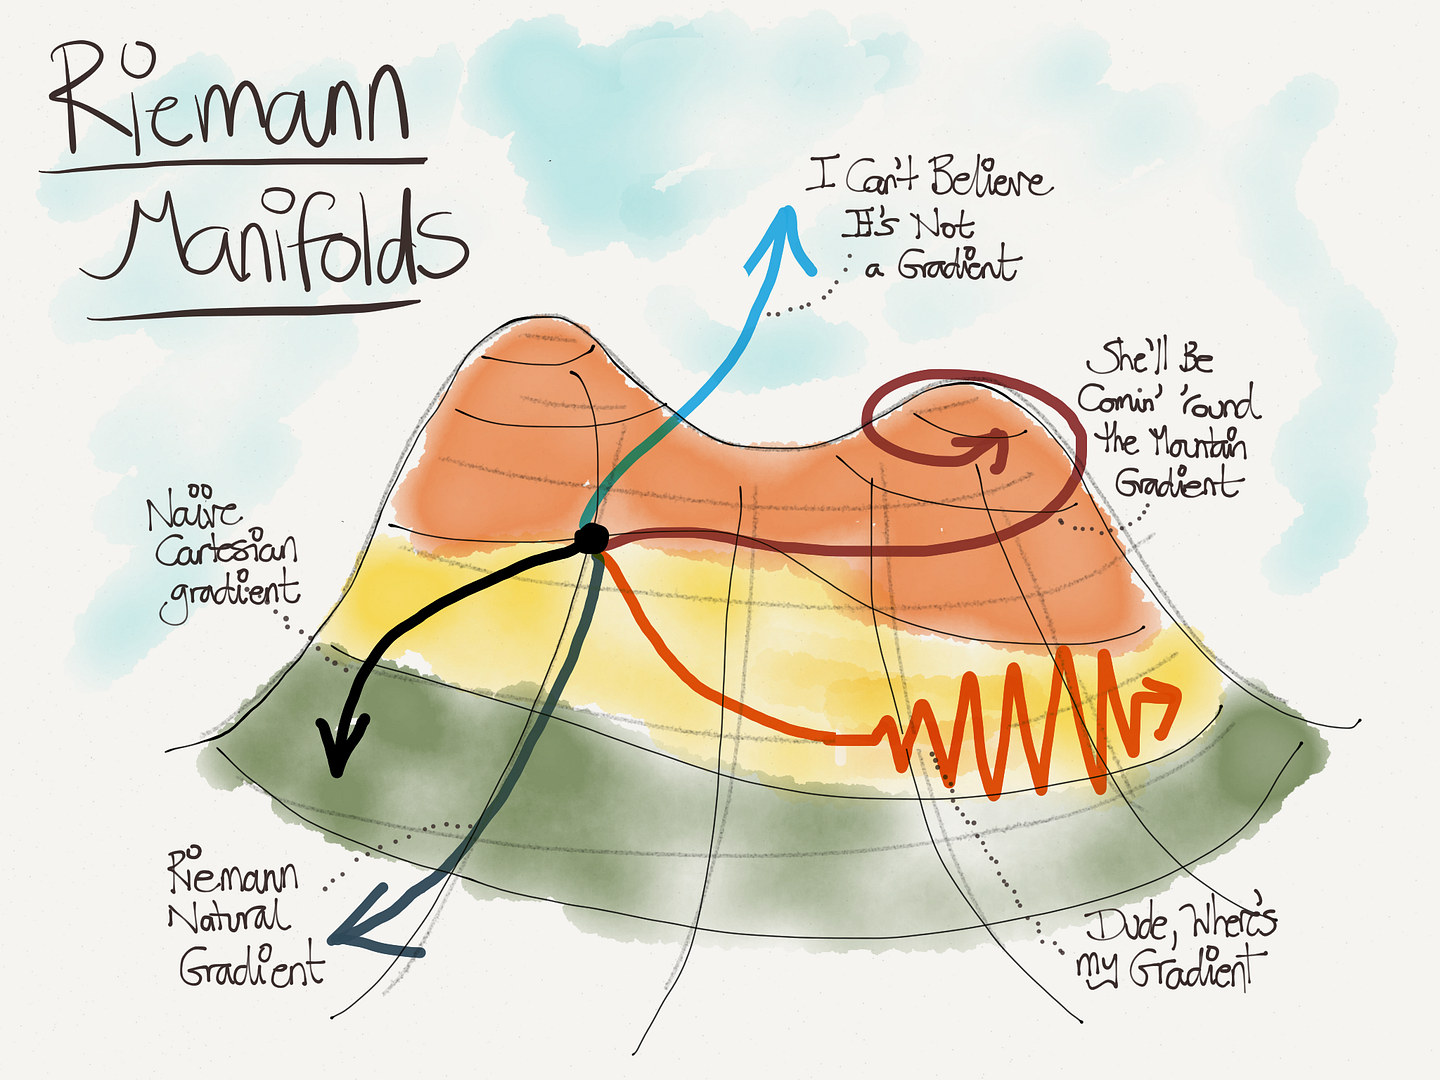 Riemann
Manifolds
I Can't Believe
It's Not
a Gradient
She'll Be
Comin' 'round
the Mountain
Gradient
Naïve
Cartesian
gradient
Riemann
Natural
Gradient
Dude, Where's
my Gradient